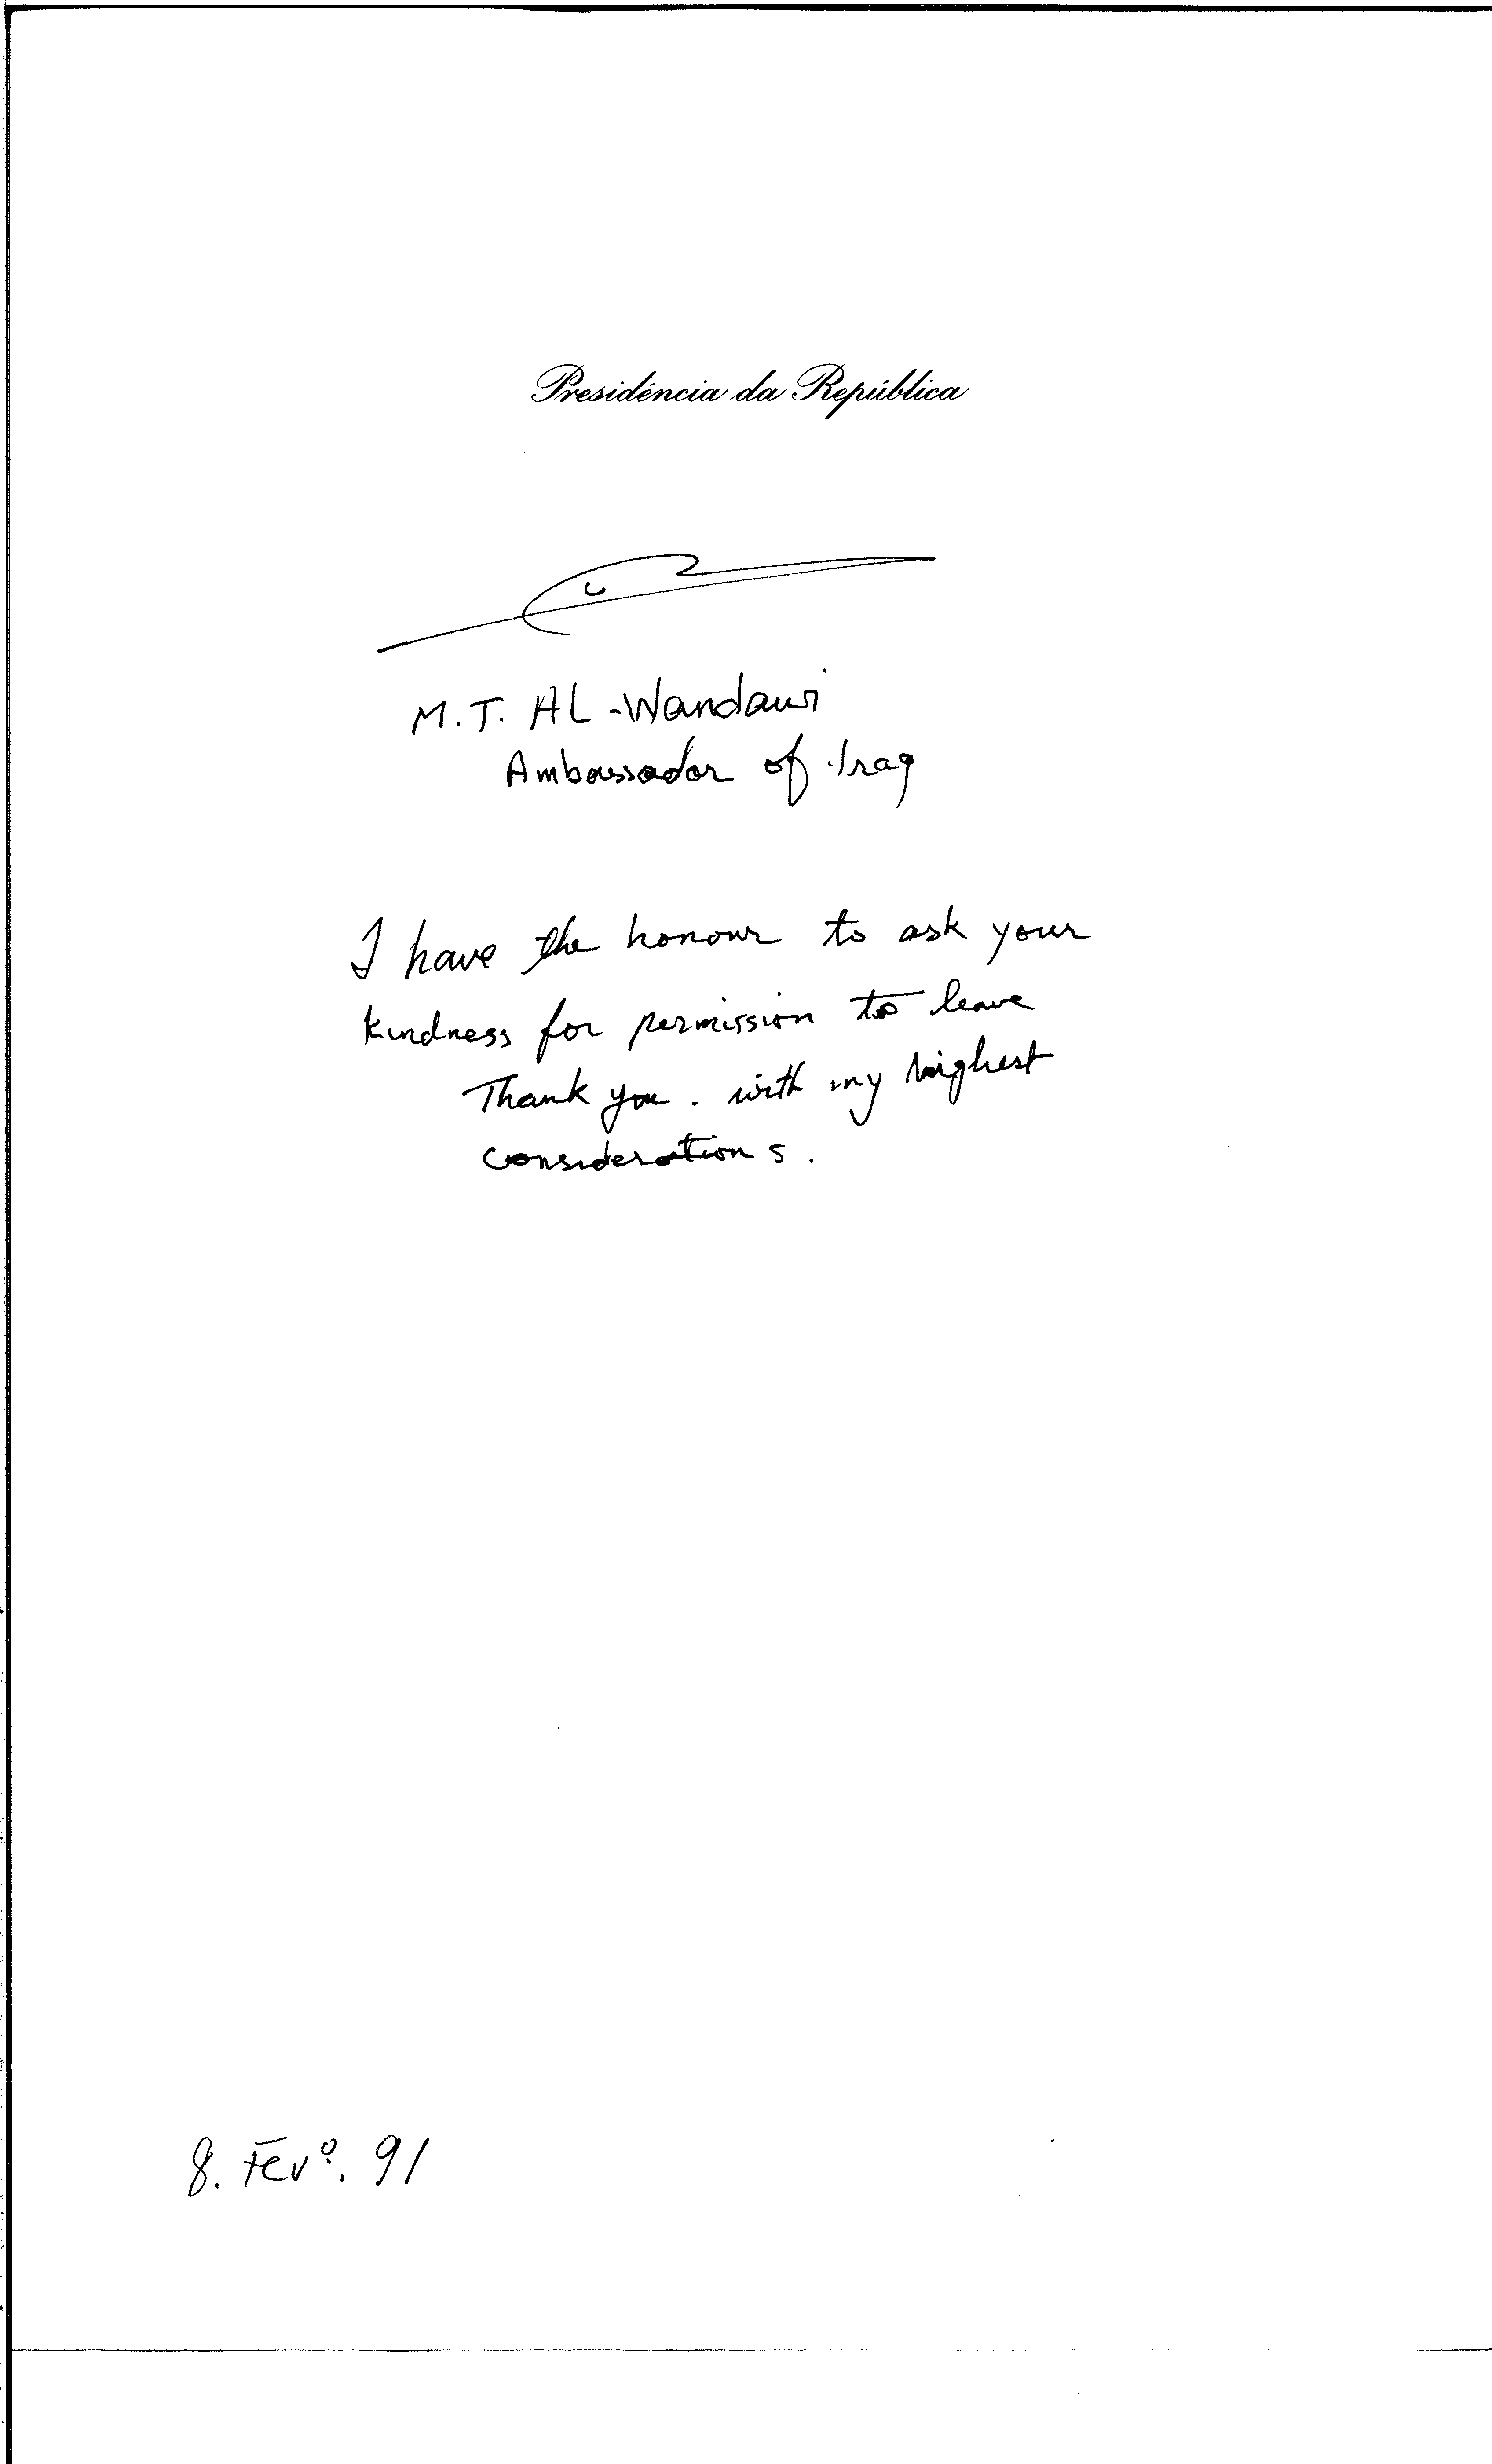 Presidência da República
M.T. AL-Wandawi
Ambassador of Iraq
I have the honour to ask your
kindness for permission to leave
Thank you. with my highest
considerations.
8. Fevº. 91